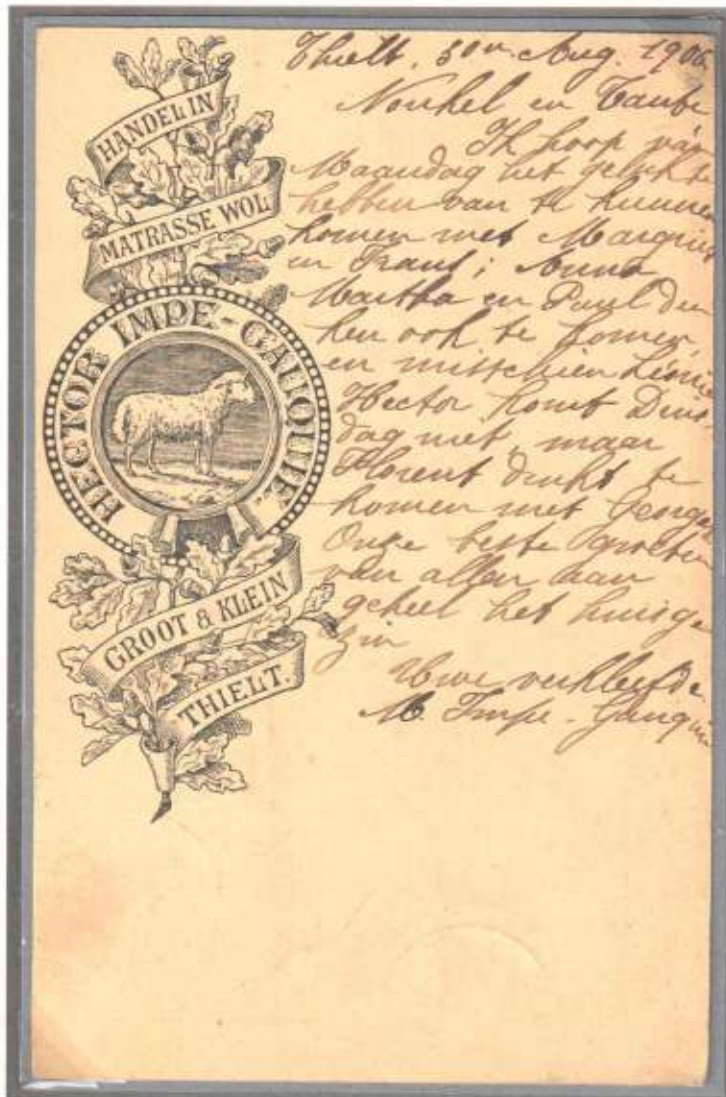 HANDEL IN
MATRASSE WOL
HECTOR IMPE-GAUQUIE.
GROOT & KLEIN
THIELT.
Thielt, 30n Aug. 1906
Nonkel en Tante
Ik hoop van
Maandag het geluk te
hebben van te kunnen
komen met Margriet
en Frans; Anna
Martha en Paul den
ken ook te komen,
en misschien Léonie
Hector komt Dins-
dag niet, maar
Florent denkt te
komen met George
Onze beste groeten
van allen aan
geheel het huisge
zin
Uwe verkleefde
M. Impe-Gauquie